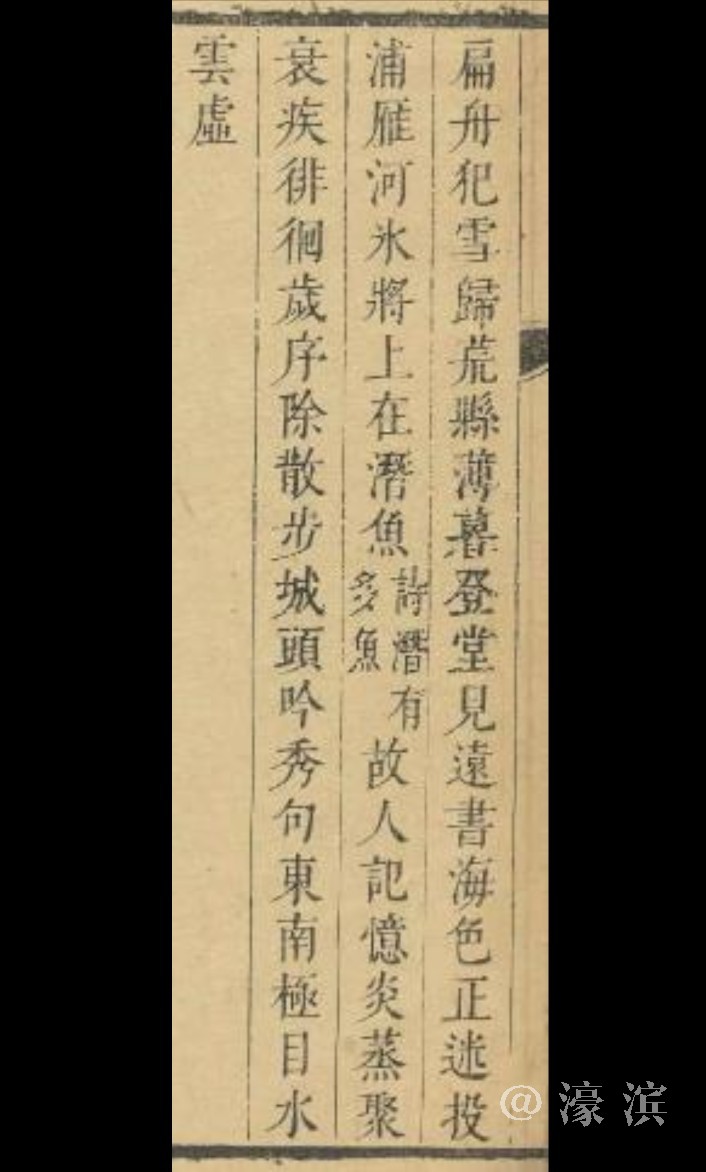 扁舟犯雪歸荒縣薄暮登堂見遠書海色正迷投
浦雁河氷將上在潛魚詩潛有多魚故人記憶炎蒸聚
衰疾徘徊歲序除散步城頭吟秀句東南極目水
雲虛
@濠滨